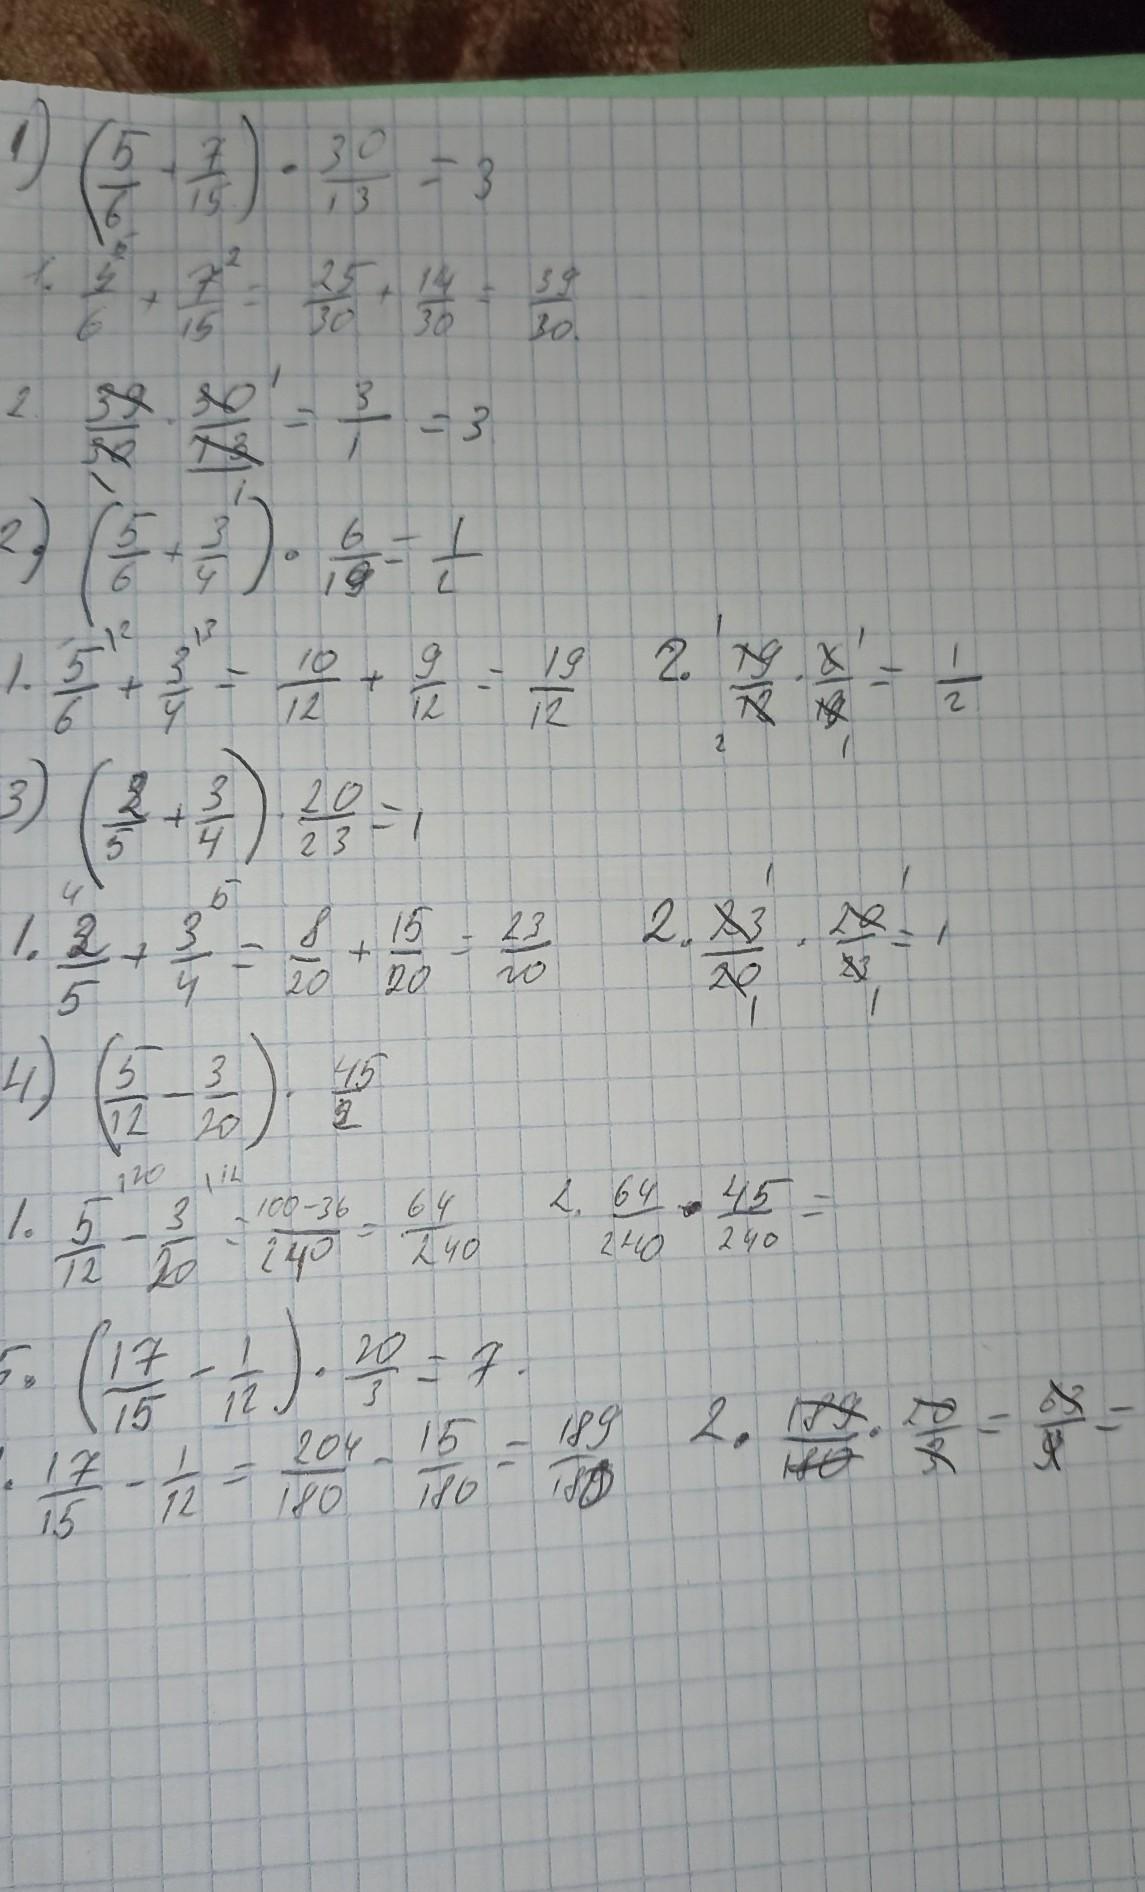 1) (5/6 + 7/15) · 30/13 = 3
1. 5/6 + 7/15² = 25/30 + 14/30 = 39/30.
2. 39/ · 30/13 ¹ = 3/1 = 3
1 1
2.) (5/6 + 3/4) · 6/19 = 1/2
1. 5/6 |2 + 3/4 |3 = 10/12 + 9/12 = 19/12 2. ¹ 19/12 ₂ · 6/19 ¹ ₁ = 1/2
3) (2/5 + 3/4) · 20/23 = 1
1. ⁴ 2/5 + 3/4 ⁵ = 8/20 + 15/20 = 23/20 2. 23/20 ¹ ₁ · 20/23 ¹ ₁ = 1
4) (5/12 − 3/20) · 45/2
1. 5/12 |20 − 3/20 |12 = 100−36/240 = 64/240 2. 64/240 · 45/240 =
5. (17/15 − 1/12) · 20/3 = 7.
. 17/15 − 1/12 = 204/180 − 15/180 = 189/180 2. 189/180 · 20/3 = 63/9 =